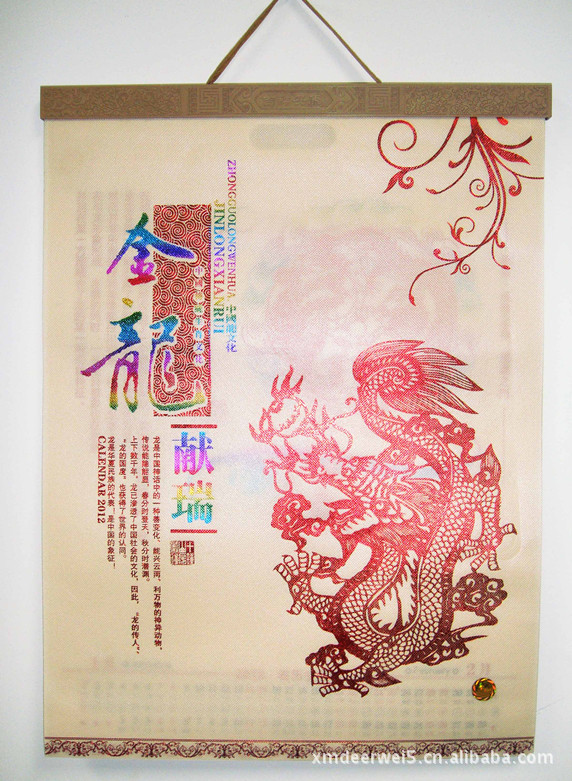 ZHONGGUOLONGWENHUA 中國龍文化
JINLONGXIANRUI
金龍
献瑞
龙是中国神话中的一种善变化、能兴云雨、利万物的神异动物，
传说能隐能显，春分时登天，秋分时潜渊。
上下数千年，龙已渗透了中国社会的文化，因此，"龙的传人"、
"龙的国度"。也获得了世界的认同。
龙是华夏民族的代表！是中国的象征！
CALENDAR 2012
xmdeerwei5.cn.alibaba.com